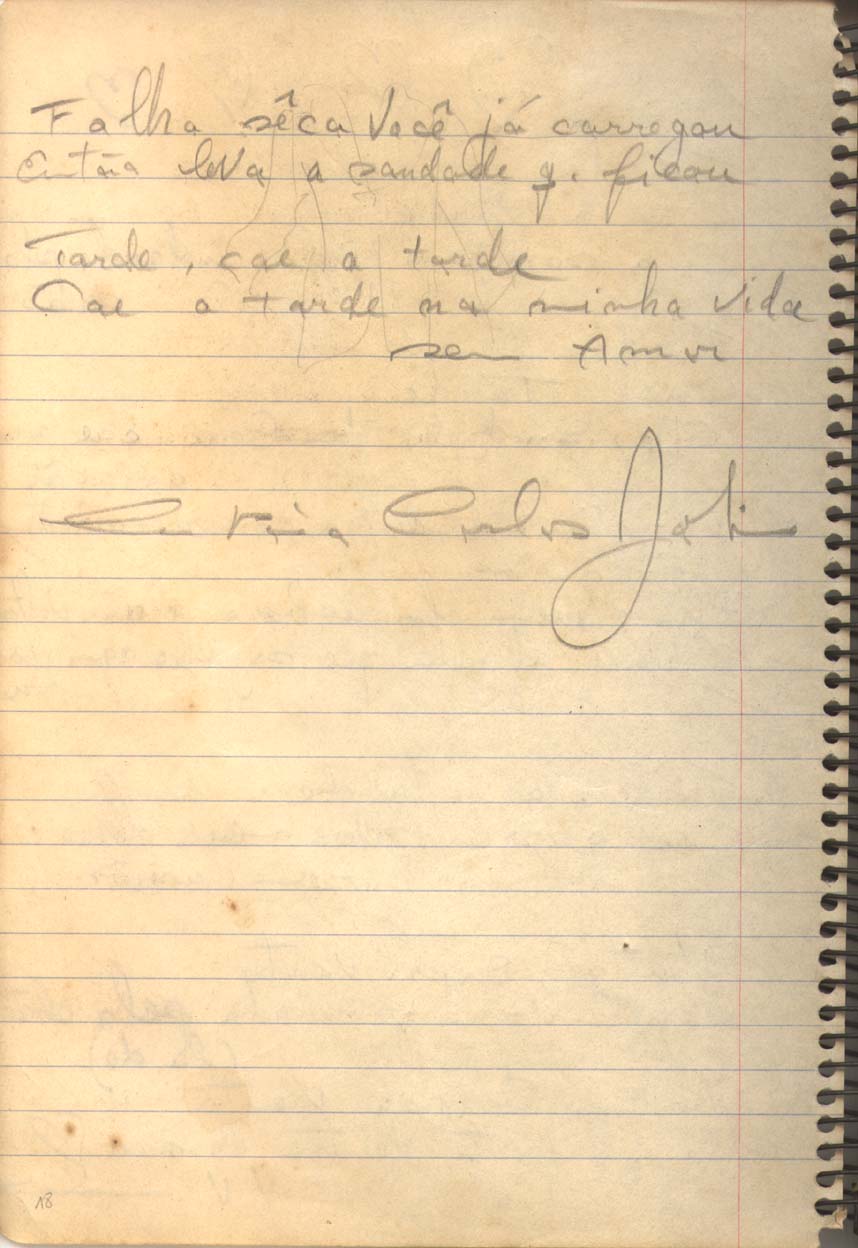 Folha sêca você já carregou
Então leva a saudade q. ficou
Tarde, cae a tarde
Cae a tarde na minha vida
sem Amor
Antônio Carlos Jobim
18